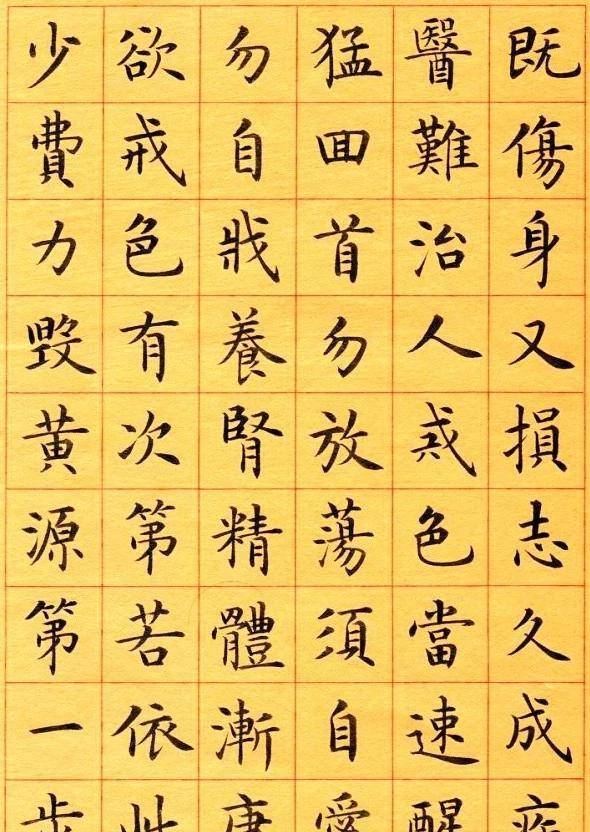 既傷身又損志久成疾
醫難治人色當速醒
猛囬首勿放蕩須自愛
勿自戕養腎精體漸康
欲戒色有次第若依此
少費力毀黃源第一步